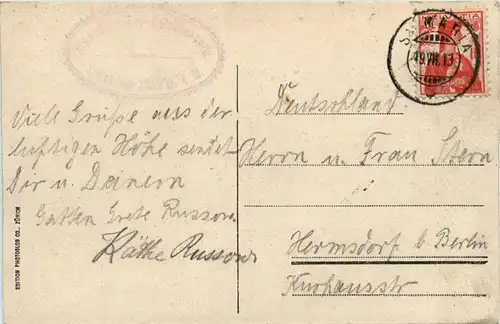 Viele Grüße aus der
luftigen Höhe sendet
Dir u. Deinem
Gatten Grete Russow
Käthe Russow
Deutschland
Herrn u. Frau Stern
Hermsdorf b Berlin
Kurhausstr
MARIA
19.VII.13
EDITION PHOTOGLOB CO., ZÜRICH